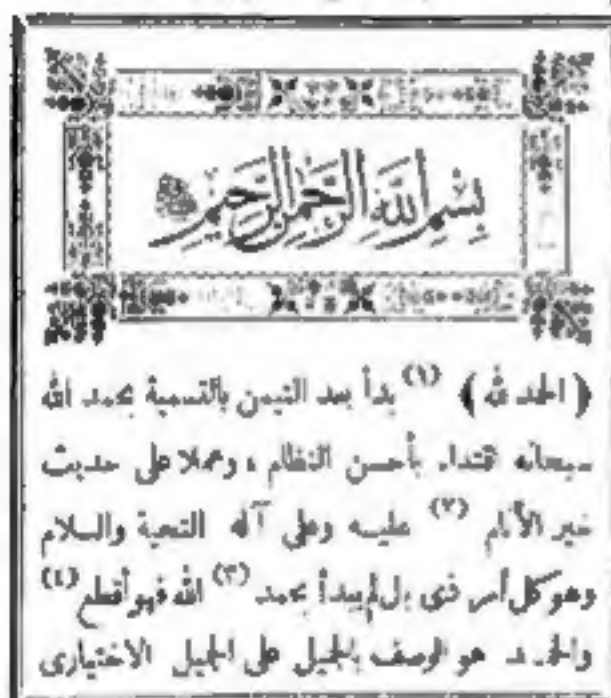 بسم الله الرحمن الرحيم
(الحمد لله) (١) بدأ بعد التيمن بالتسمية بحمد الله
سبحانه اقتداء بأحسن النظام ، وعملا على حديث
خير الأنام (٢) عليه وعلى آله التحية والسلام
وهو كل أمر ذى بال لم يبدأ بحمد (٣) الله فهو أقطع (٤)
والحمد هو الوصف بالجميل على الجميل الاختيارى